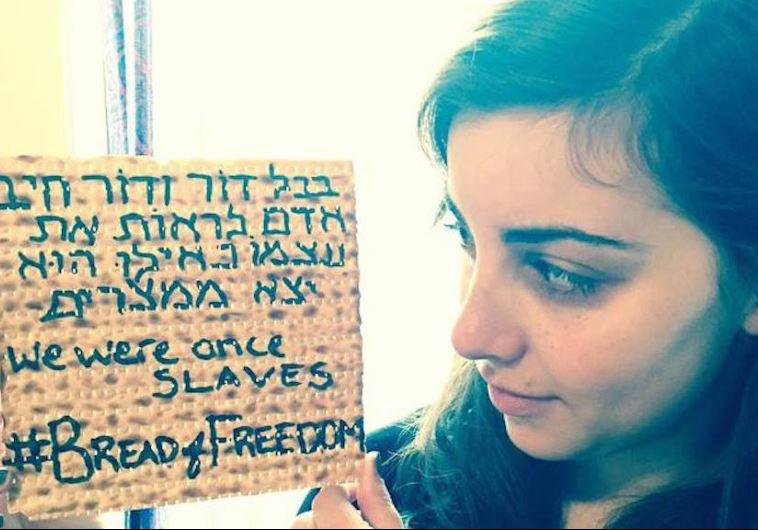 בכל דור ודור חיב
אדם לראות את
עצמו כאילו הוא
יצא ממצרים
we were once
SLAVES
#BREAD of FREEDOM